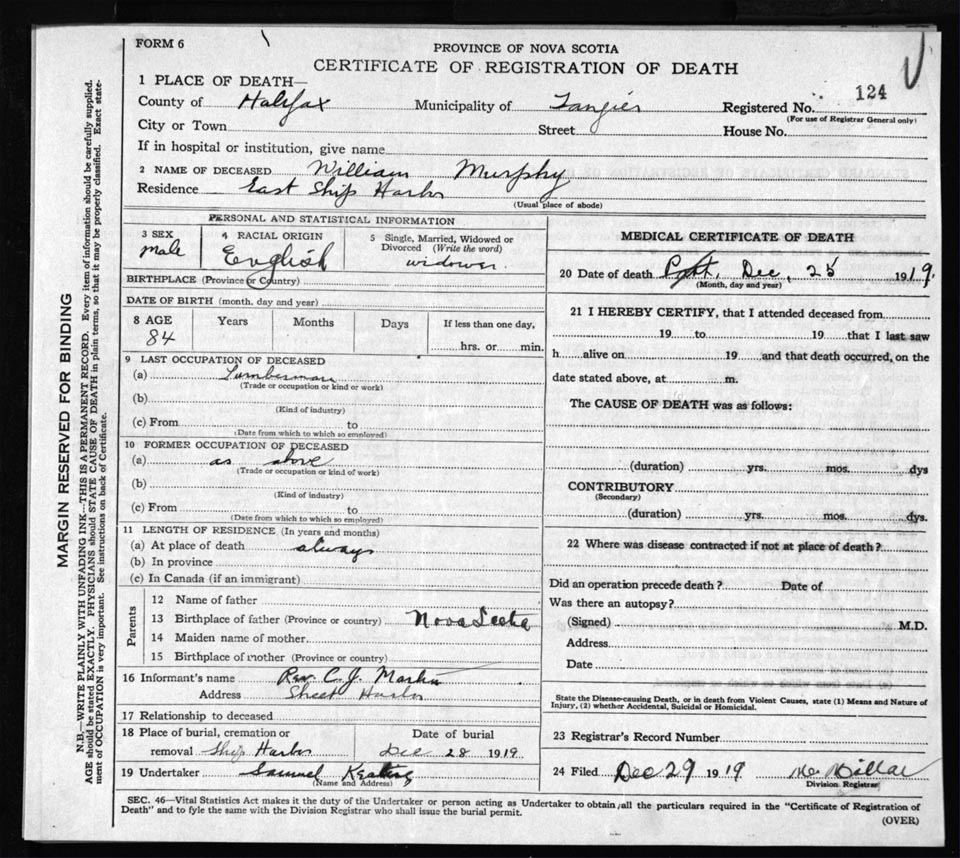 FORM 6
PROVINCE OF NOVA SCOTIA
CERTIFICATE OF REGISTRATION OF DEATH
1 PLACE OF DEATH—
County of Halifax Municipality of Tangier Registered No. 124
(For use of Registrar General only)
City or Town Street House No.
If in hospital or institution, give name
2 NAME OF DECEASED William Murphy
Residence East Ship Harbor
(Usual place of abode)
MARGIN RESERVED FOR BINDING
N.B.—WRITE PLAINLY WITH UNFADING INK—THIS IS A PERMANENT RECORD. Every item of information should be carefully supplied.
AGE should be stated EXACTLY. PHYSICIANS should STATE CAUSE OF DEATH in plain terms, so that it may be properly classified. Exact state-
ment of OCCUPATION is very important. See instructions on back of Certificate.
PERSONAL AND STATISTICAL INFORMATION
3 SEX
male
4 RACIAL ORIGIN
English
5 Single, Married, Widowed or
Divorced (Write the word)
widower.
BIRTHPLACE (Province or Country)
DATE OF BIRTH (month, day and year)
8 AGE Years Months Days If less than one day,
84
hrs. or min.
9 LAST OCCUPATION OF DECEASED
(a) Lumberman
(Trade or occupation or kind or work)
(b)
(Kind of industry)
(c) From to
(Date from which to which so employed)
10 FORMER OCCUPATION OF DECEASED
(a) as above
(Trade or occupation or kind of work)
(b)
(Kind of industry)
(c) From to
(Date from which to which so employed)
11 LENGTH OF RESIDENCE (In years and months)
(a) At place of death always
(b) In province
(c) In Canada (if an immigrant)
Parents
12 Name of father
13 Birthplace of father (Province or country) Nova Scotia
14 Maiden name of mother
15 Birthplace of mother (Province or country)
16 Informant's name Rev. C. J.
Address Sheet Harbor
17 Relationship to deceased
18 Place of burial, cremation or
removal Ship Harbor
Date of burial
Dec 28 1919
19 Undertaker Samuel Keating
(Name and Address)
MEDICAL CERTIFICATE OF DEATH
20 Date of death Dec. 25 1919.
(Month, day and year)
21 I HEREBY CERTIFY, that I attended deceased from
19 to 19 that I last saw
h alive on 19 and that death occurred, on the
date stated above, at m.
The CAUSE OF DEATH was as follows:
(duration) yrs. mos. dys
CONTRIBUTORY
(Secondary)
(duration) yrs. mos. dys.
22 Where was disease contracted if not at place of death?
Did an operation precede death? Date of
Was there an autopsy?
(Signed) M.D.
Address
Date
State the Disease-causing Death, or in death from Violent Causes, state (1) Means and Nature of
Injury, (2) whether Accidental, Suicidal or Homicidal.
23 Registrar's Record Number
24 Filed Dec 29 1919
Division Registrar
SEC. 46—Vital Statistics Act makes it the duty of the Undertaker or person acting as Undertaker to obtain all the particulars required in the "Certificate of Registration of
Death" and to fyle the same with the Division Registrar who shall issue the burial permit.
(OVER)